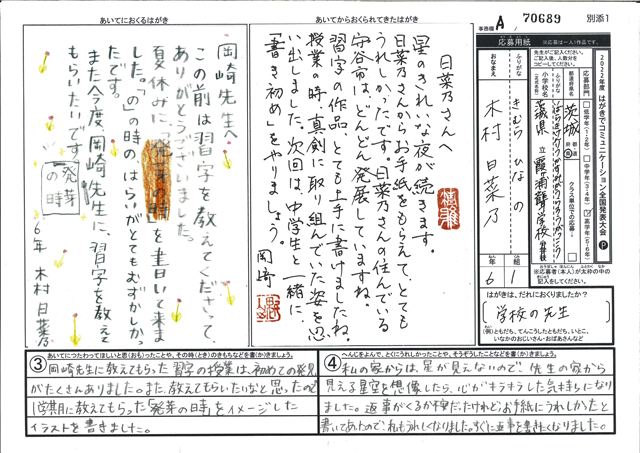 事務欄 A 70689 別添1
あいてにおくるはがき
岡崎先生へ
この前は習字を教えてくださって、
ありがとうございました。
夏休みに、「発芽の時」を書いて来ま
した。「の」の時の、はらいがとてもむずかしかっ
たです。
また今度、岡崎先生に、習字を教えて
もらいたいです。
発芽の時
6年 木村日菜乃
あいてからおくられてきたはがき
日菜乃さんへ
星のきれいな夜が続きます。
日菜乃さんからお手紙をもらえて、とても
うれしかったです。日菜乃さんの住んでいる
守谷市は、どんどん発展していますね。
習字の作品、とても上手に書けましたね。
授業の時、真剣に取り組んでいた姿を思
い出しました。次回は、中学生と一緒に、
「書き初め」をやりましょう。
岡崎
応募用紙
※応募は一人1作品です。
2022年度 はがきでコミュニケーション全国発表大会
応募部門
低学年(1・2年)
中学年(3・4年)
高学年(5・6年)
都道府県名
茨城
クラス単位での応募
小学校名
茨城県立霞ヶ浦聾学校
ふりがな
おなまえ
きむら ひなの
木村 日菜乃
6年
1組
※応募者(本人)が太枠の中の
記入をしてください。
はがきは、だれにおくりましたか?
学校の先生
(例)ともだち、てんこうしたともだち、いとこ、
いなかのおじいさん・おばあさんなど
③ あいてにつたわってほしいと思(おも)ったことや、その時(とき)のきもちなどを書(か)きましょう。
岡崎先生に教えてもらった習字の授業は、初めての発見
がたくさんありました。また、教えてもらいたいなと思ったので
1学期に教えてもらった「発芽の時」をイメージした
イラストを書きました。
④ へんじをよんで、とくにうれしかったことや、そうぞうしたことなどを書(か)きましょう。
私の家からは、星が見えないので、先生の家から
見える星空を想像したら、心がキラキラした気持ちになり
ました。返事がくるか不安だったけれど、お手紙にうれしかったと
書いてあったので、私もうれしくなりました。すぐに返事を書きたくなりました。